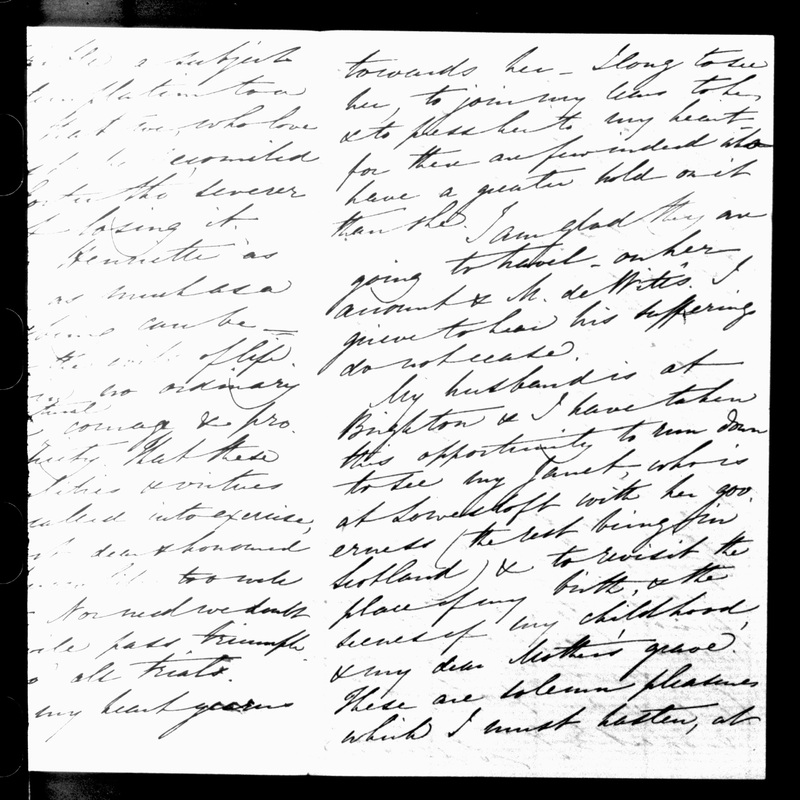 be a subject
that we, who love
severer
losing it.
Henriette as
as much as a
can be —
of life
no ordinary
courage & pro-
that these
& virtues
into exercise,
dear & honoured
too well
Nor need we doubt
pass, triumph
all trials.
my heart yearns
towards her — I long to see
her, to join my tears to hers
& to press her to my heart —
for there are few indeed who
have a greater hold on it
than she. I am glad they are
going to travel — on her
account & M. de Witt's. I
grieve to hear his sufferings
do not cease.
My husband is at
Brighton & I have taken
this opportunity to run down
to see my Janet, who is
at Lowestoft with her gov-
erness (the rest being in
Scotland) & to revisit the
place of my birth, & the
scenes of my childhood,
& my dear Mother's grave.
These are solemn pleasures
which I must hasten, at